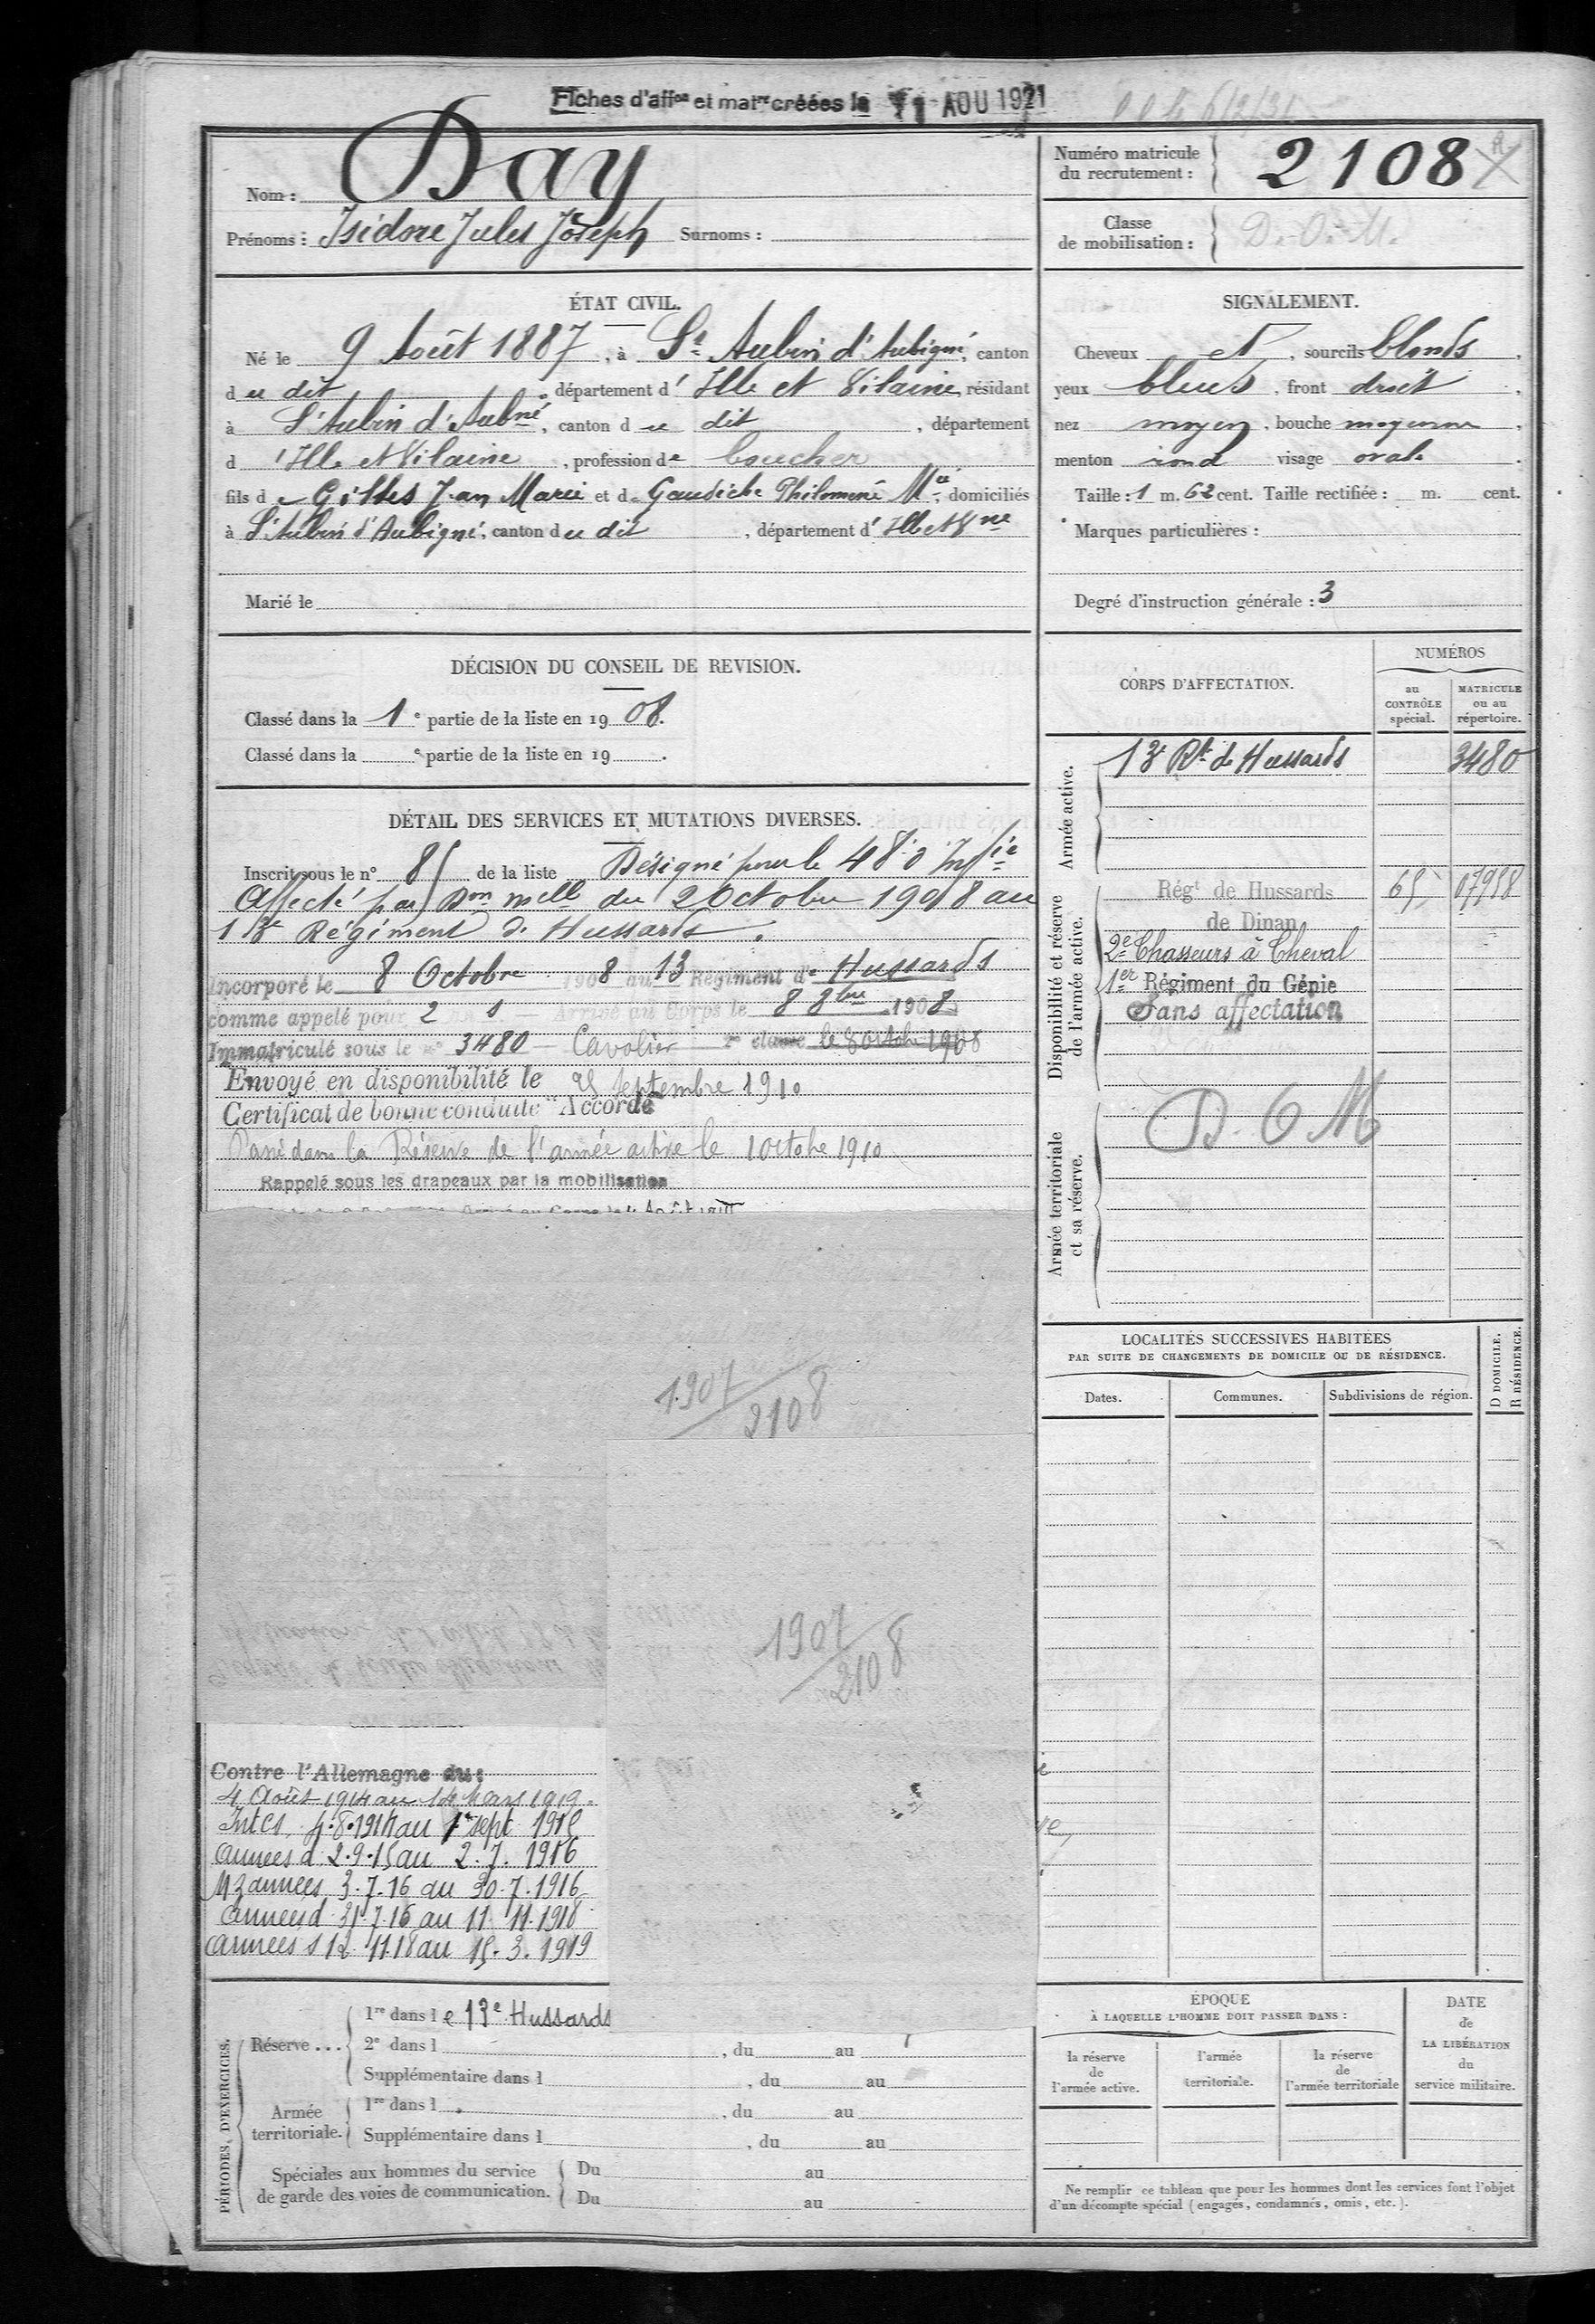 Fiches d'affon et matre créées le 11 AOU 1921
Nom : Day
Prénoms : Isidore Jules Joseph Surnoms :
Numéro matricule
du recrutement : 2108
Classe
de mobilisation : D. O. M.
ÉTAT CIVIL.
Né le 9 Août 1887, à St Aubin d'Aubigné, canton
du dit, département d'Ille et Vilaine, résidant
à St Aubin d'Aubné, canton du dit, département
d'Ille et Vilaine, profession de boucher
fils de Gilles Jean Marie et de Gaudiche Philomène Mie, domiciliés
à St Aubin d'Aubigné, canton du dit, département d'Ille et Vne
Marié le
SIGNALEMENT.
Cheveux et, sourcils blonds,
yeux bleus, front droit,
nez moyen, bouche moyenne,
menton rond visage ovale.
Taille : 1 m. 62 cent. Taille rectifiée : m. cent.
Marques particulières :
Degré d'instruction générale : 3
DÉCISION DU CONSEIL DE REVISION.
Classé dans la 1e partie de la liste en 1908.
Classé dans la e partie de la liste en 19 .
DÉTAIL DES SERVICES ET MUTATIONS DIVERSES.
Inscrit sous le n° 85 de la liste Désigné pour le 48e d'Infie
Affecté par Don mlle du 2 Octobre 1908 au
13e Régiment de Hussards.
Incorporé le 8 Octobre 1908 au 13 Régiment de Hussards
comme appelé pour 2 Arrivé au Corps le 8 8bre 1908
Immatriculé sous le n° 3480 Cavalier 2e classe le 8 octobre 1908
Envoyé en disponibilité le 25 septembre 1910
Certificat de bonne conduite "Accordé
Passé dans la Réserve de l'armée active le 1 octobre 1910
Rappelé sous les drapeaux par la mobilisation
1907
2108
1907
2108
Contre l'Allemagne du :
4 Août 1914 au 14 Mars 1919.
Int CS, 4.8.1914 au 1er sept 1915
Armées d 2.9.15 au 2.7.1916
3.7.16 au 30.7.1916
Armées d 31.7.16 au 11.11.1918
Armées s 12.11.18 au 15.3.1919
PÉRIODES D'EXERCICES.
Réserve ...
1re dans le 13e Hussards
2e dans l , du au
Supplémentaire dans l , du au
Armée
territoriale.
1re dans l , du au
Supplémentaire dans l , du au
Spéciales aux hommes du service
de garde des voies de communication.
Du au
Du au
CORPS D'AFFECTATION.
NUMÉROS
au
CONTRÔLE
spécial.
MATRICULE
ou au
répertoire.
Armée active.
13e Rt de Hussards 3480
Disponibilité et réserve
de l'armée active.
Régt de Hussards 65
de Dinan
2e Chasseurs à Cheval
1er Régiment du Génie
Sans affectation
Armée territoriale
et sa réserve.
D. O M
LOCALITÉS SUCCESSIVES HABITÉES
PAR SUITE DE CHANGEMENTS DE DOMICILE OU DE RÉSIDENCE.
Dates.
Communes.
Subdivisions de région.
D DOMICILE.
R RÉSIDENCE.
ÉPOQUE
À LAQUELLE L'HOMME DOIT PASSER DANS :
la réserve
de
l'armée active.
l'armée
territoriale.
la réserve
de
l'armée territoriale
DATE
de
LA LIBÉRATION
du
service militaire.
Ne remplir ce tableau que pour les hommes dont les services font l'objet
d'un décompte spécial (engagés, condamnés, omis, etc.).